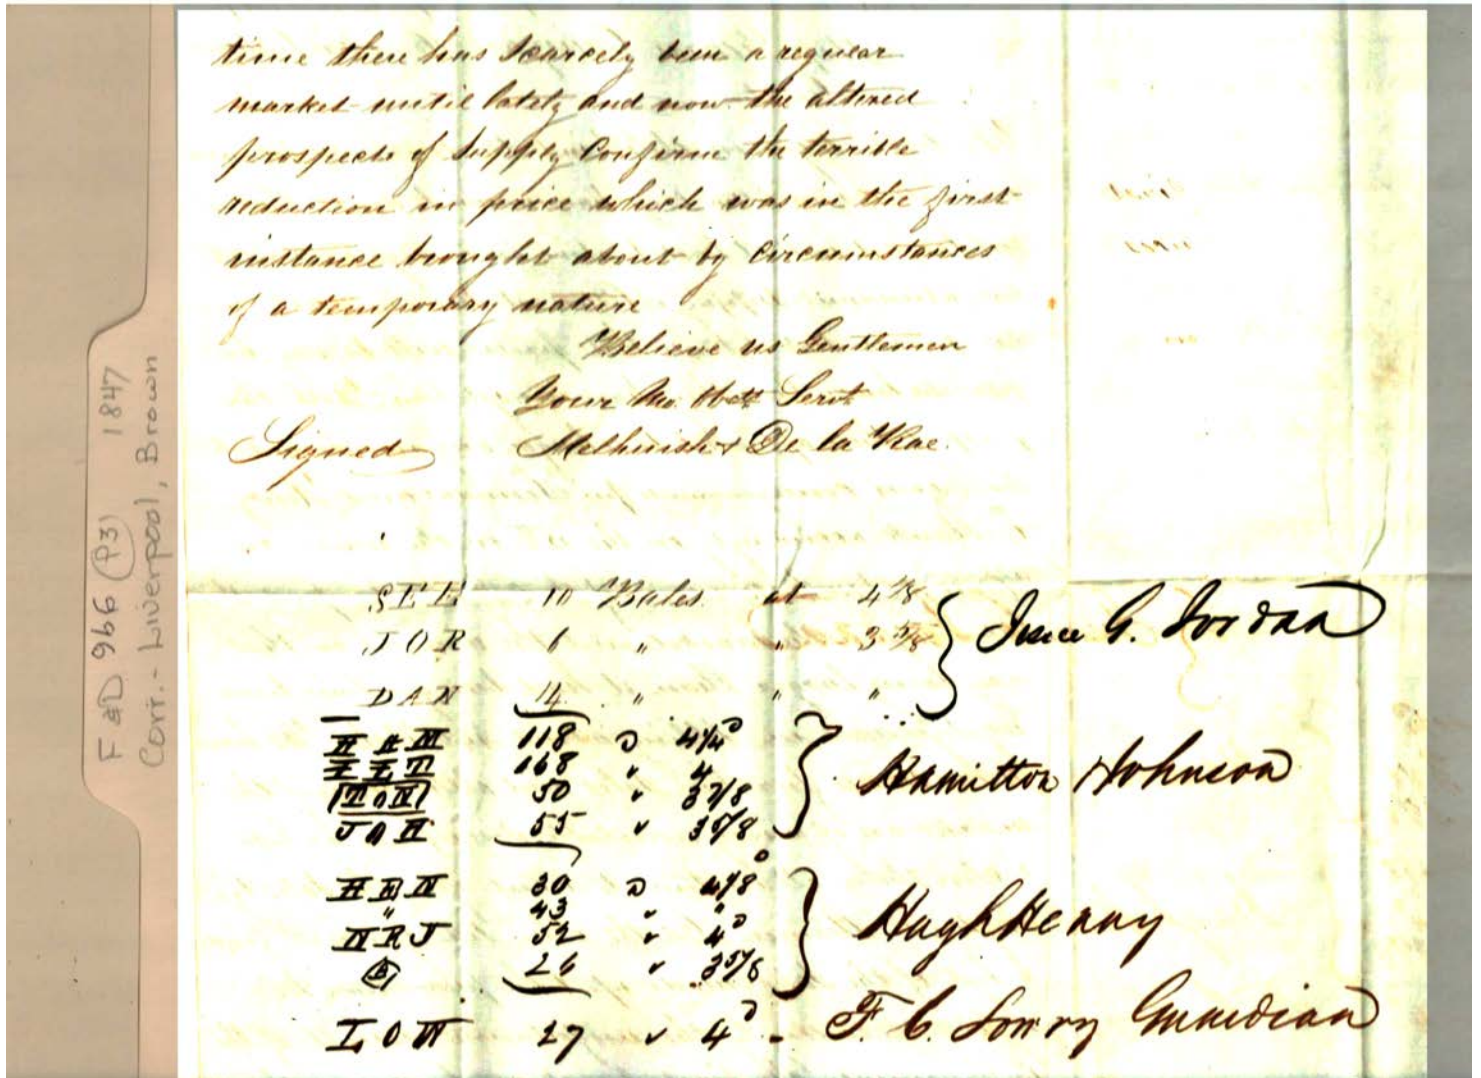 time there has scarcely been a regular
market until lately and now the altered
prospects of supply confirm the terrible
reduction in price which was in the first
instance brought about by circumstances
of a temporary nature
Believe us Gentlemen
Your Mo. Obt Servt
Signed Melhuish & De la Rae.
SEE 10 Bales at 4 1/8
JOR 6 " " 3 5/8
DAN 14 " " "
G. Jordan
118 4 1/4
168 " 4
50 " 3 7/8
JOH 55 " 3 5/8
Hamilton Johnson
HEN 30 4 1/8
" 43 " "
NRJ 52 " 4
B 26 " 3 5/8
Hugh Henry
LOW 27 " 4 - F. C. Lowry Guardian
F&D 966 (P3) 1847
Corr.- Liverpool, Brown